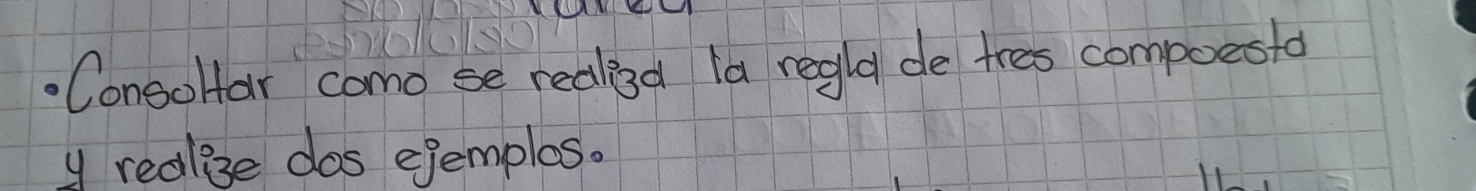 • Consoltar como se realiza la regla de tres compoesta
y realize dos ejemplos.